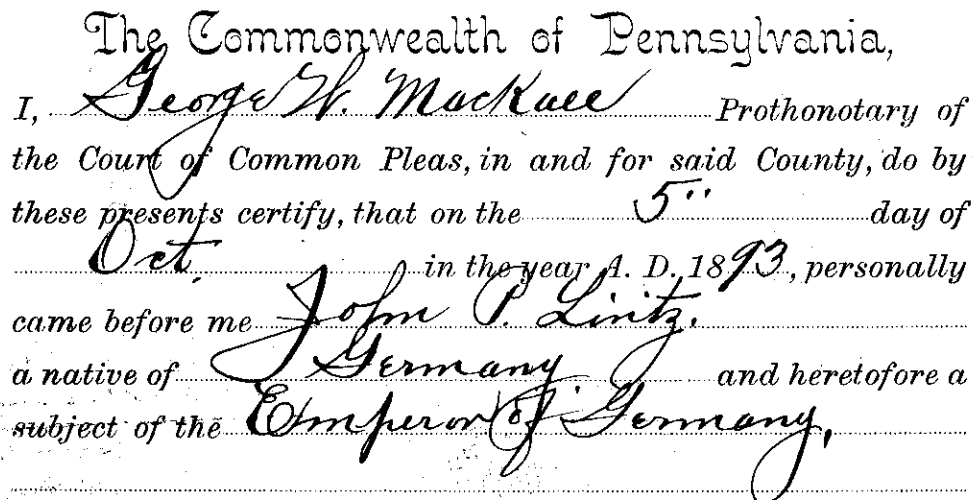 The Commonwealth of Pennsylvania,
I, George W. Mackall Prothonotary of
the Court of Common Pleas, in and for said County, do by
these presents certify, that on the 5" day of
Oct. in the year A. D. 1893, personally
came before me John P. Lintz.
a native of Germany and heretofore a
subject of the Emperor of Germany,